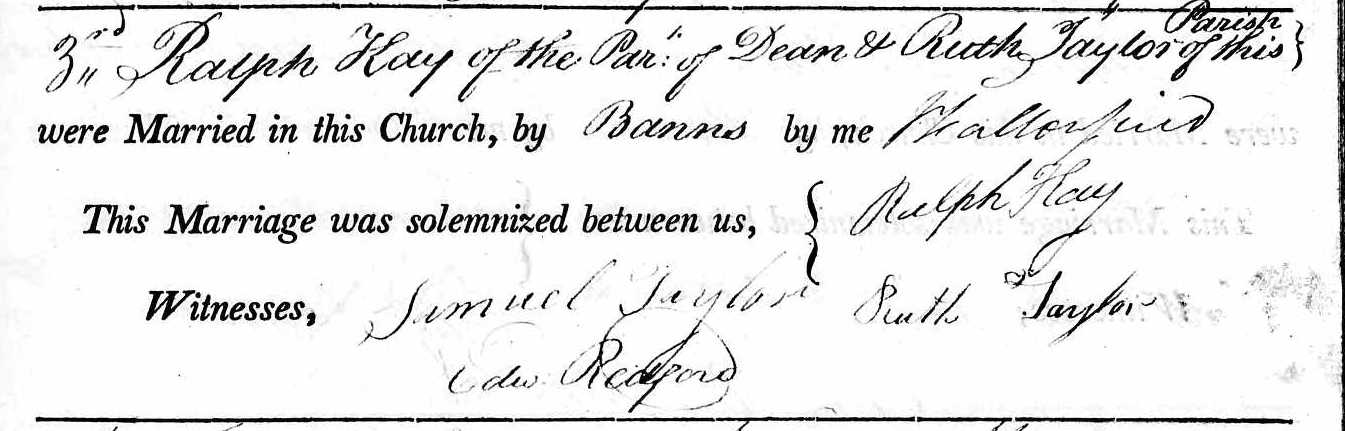 3rd Ralph Hay of the Par: of Dean & Ruth Taylor of this Parish }
were Married in this Church, by Banns by me
This Marriage was solemnized between us, { Ralph Hay
Witnesses, Samuel Taylor Ruth Taylor
Edw. Redford